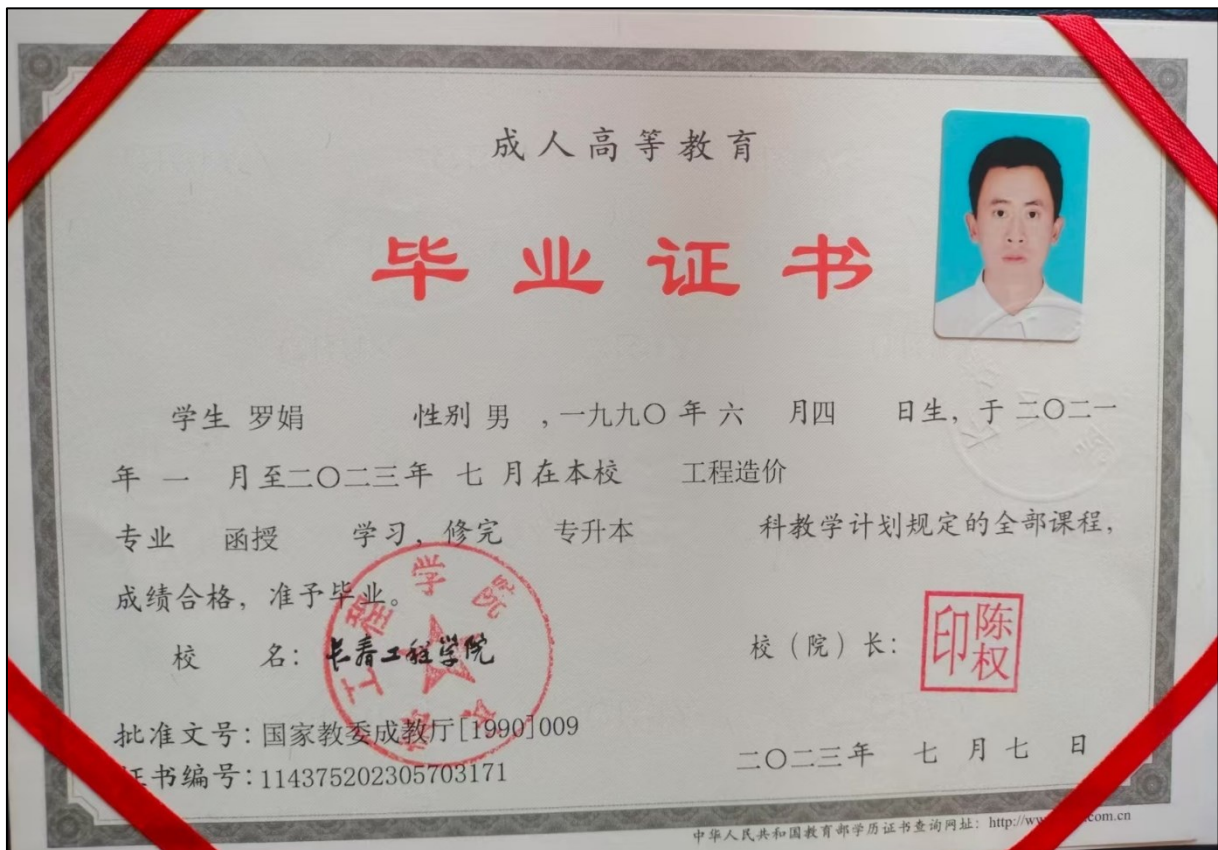 成人高等教育
毕业证书
学生 罗娟 性别 男 ,一九九〇 年 六 月四 日生,于 二〇二一
年 一 月至二〇二三年 七 月在本校 工程造价
专业 函授 学习,修完 专升本 科教学计划规定的全部课程,
成绩合格,准予毕业。
校 名: 长春工程学院
校(院)长: 陈权印
批准文号:国家教委成教厅[1990]009
二〇二三年 七 月七 日
书编号:114375202305703171
中华人民共和国教育部学历证书查询网址: http://ww com.cn